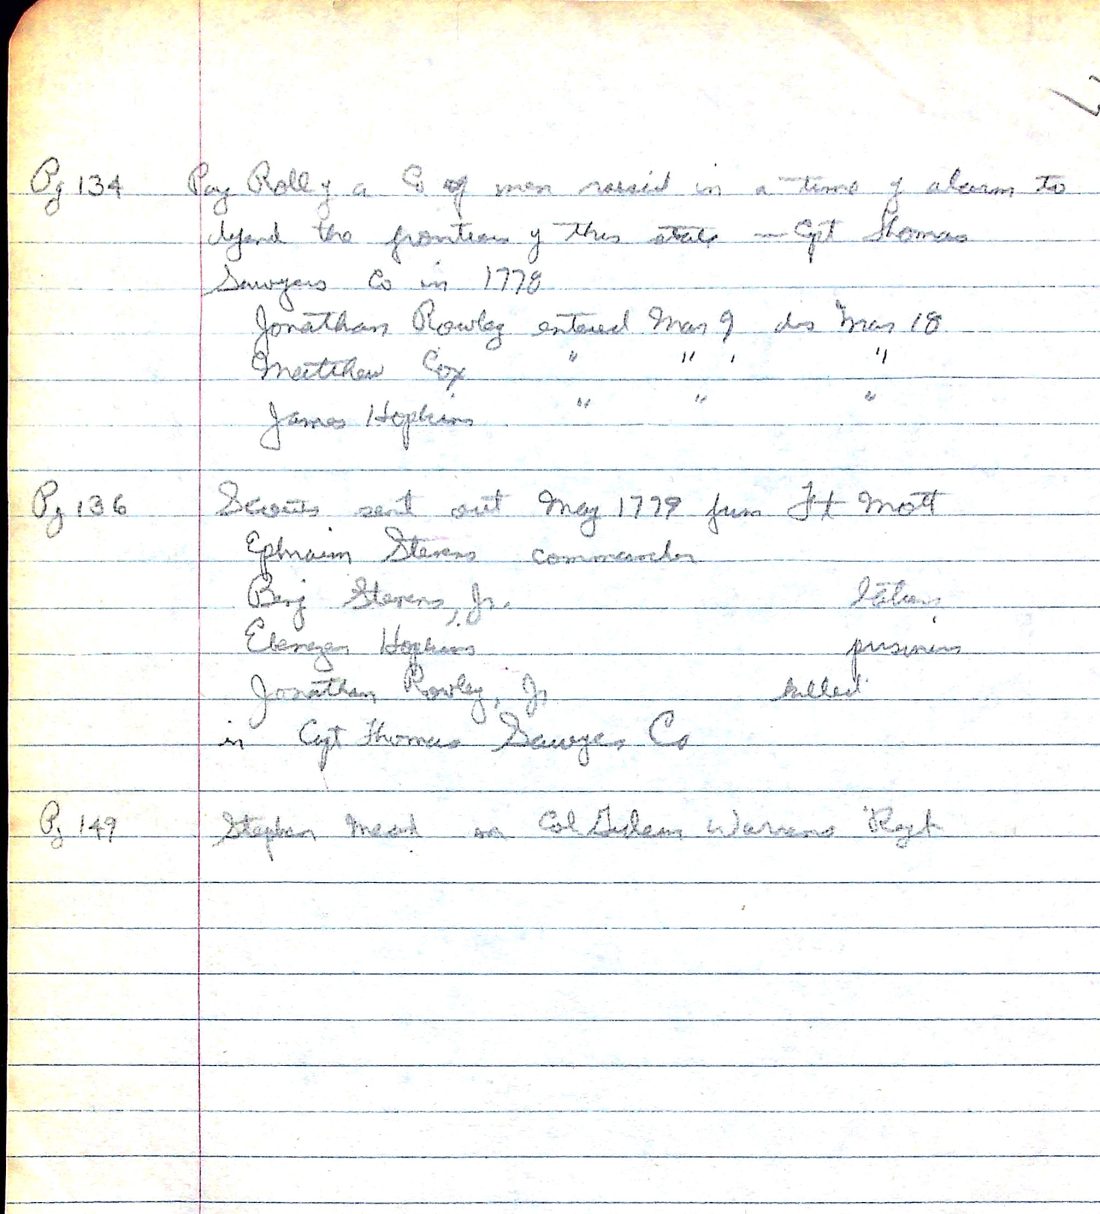 Pg 134 Pay Roll of a Co of men raised in a time of alarm to
defend the frontiers of this state — Cpt Thomas
Sawyers Co in 1778
Jonathan Rowley entered Mar 9 dis Mar 18
Matthew Cox " " ' "
James Hopkins " " "
Pg 136 Scouts sent out May 1779 from Ft Mott
Ephraim Stevens commander
Benj Stevens, Jr. taken
Ebenezer Hopkins prisoners
Jonathan Rowley, Jr killed
in Cpt Thomas Sawyer Co
Pg 149 Stephen Mead in Col Gideon Warrens Regt